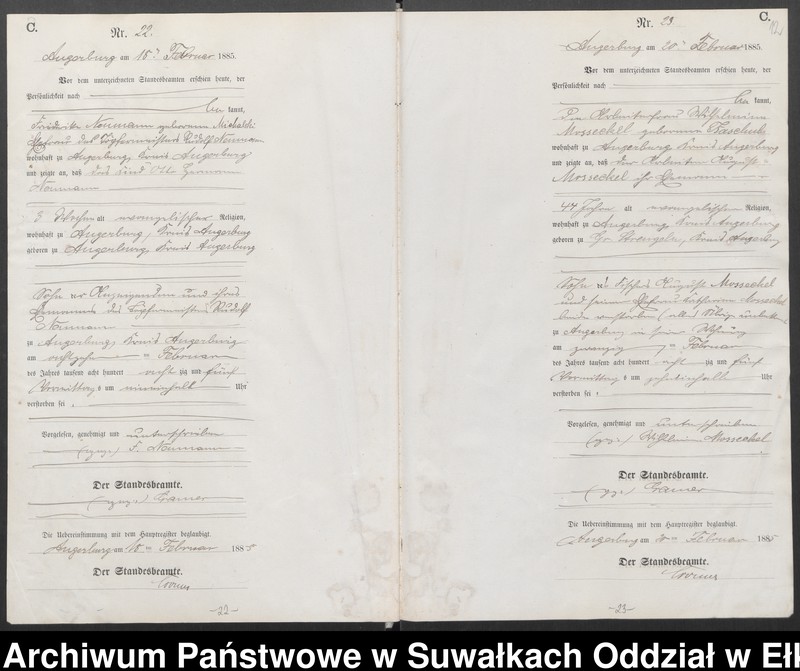 C.
Nr. 22.
Angerburg am 18ten Februar 1885.
Vor dem unterzeichneten Standesbeamten erschien heute, der
Persönlichkeit nach
be kannt,
Friederike Neumann geborene Michalski
Ehefrau des Töpfermeisters Rudolf Neumann
wohnhaft zu Angerburg, Kreis Angerburg
und zeigte an, daß das Kind Otto Hermann
Neumann
3 Wochen alt evangelischer Religion,
wohnhaft zu Angerburg, Kreis Angerburg
geboren zu Angerburg, Kreis Angerburg
Sohn der Anzeigenden und ihres
Ehemannes des Töpfermeisters Rudolf
Neumann
zu Angerburg, Kreis Angerburg
am achtzehnten Februar
des Jahres tausend acht hundert acht zig und fünf
Vormittags um Uhr
verstorben sei.
Vorgelesen, genehmigt und unterschrieben
(gez.) F. Neumann
Der Standesbeamte.
(gez.)
Die Uebereinstimmung mit dem Hauptregister beglaubigt.
Angerburg am 18ten Februar 1885
Der Standesbeamte.
-22-
C.
Nr. 23.
Angerburg am 20ten Februar 1885.
Vor dem unterzeichneten Standesbeamten erschien heute, der
Persönlichkeit nach
be kannt,
Die Arbeiterfrau Wilhelmine
Mosseckel geborene
wohnhaft zu Angerburg Kreis Angerburg
und zeigte an, daß der Arbeiter Auguste
Mosseckel ihr Ehemann
44 Jahre alt evangelischer Religion,
wohnhaft zu Angerburg, Kreis Angerburg
geboren zu Gr. Strengeln, Kreis Angerburg
Sohn des Fischers Auguste Mosseckel
und seiner Ehefrau Mosseckel
beide verstorben
zu Angerburg in seiner Wohnung
am zwanzigten Februar
des Jahres tausend acht hundert acht zig und fünf
Vormittags um Uhr
verstorben sei.
Vorgelesen, genehmigt und unterschrieben
(gez.) Wilhelmine Mosseckel
Der Standesbeamte.
(gez.)
Die Uebereinstimmung mit dem Hauptregister beglaubigt.
Angerburg am 20ten Februar 1885
Der Standesbeamte.
-23-
Archiwum Państwowe w Suwałkach Oddział w Eł